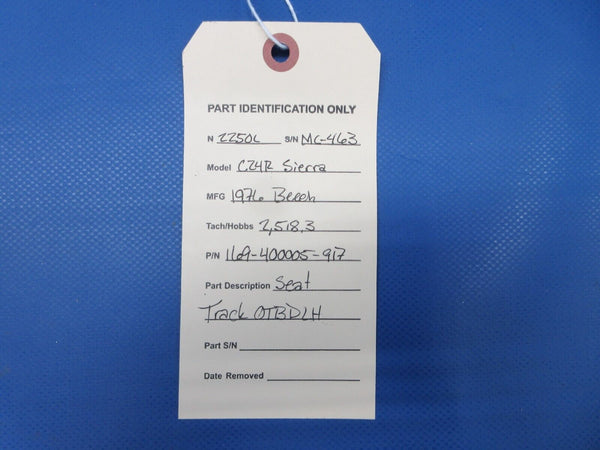 PART IDENTIFICATION ONLY
N 2250L S/N MC-463
Model C24R Sierra
MFG 1976 Beech
Tach/Hobbs 2,518.3
P/N 169-400005-917
Part Description Seat
Track OTBDLH
Part S/N
Date Removed